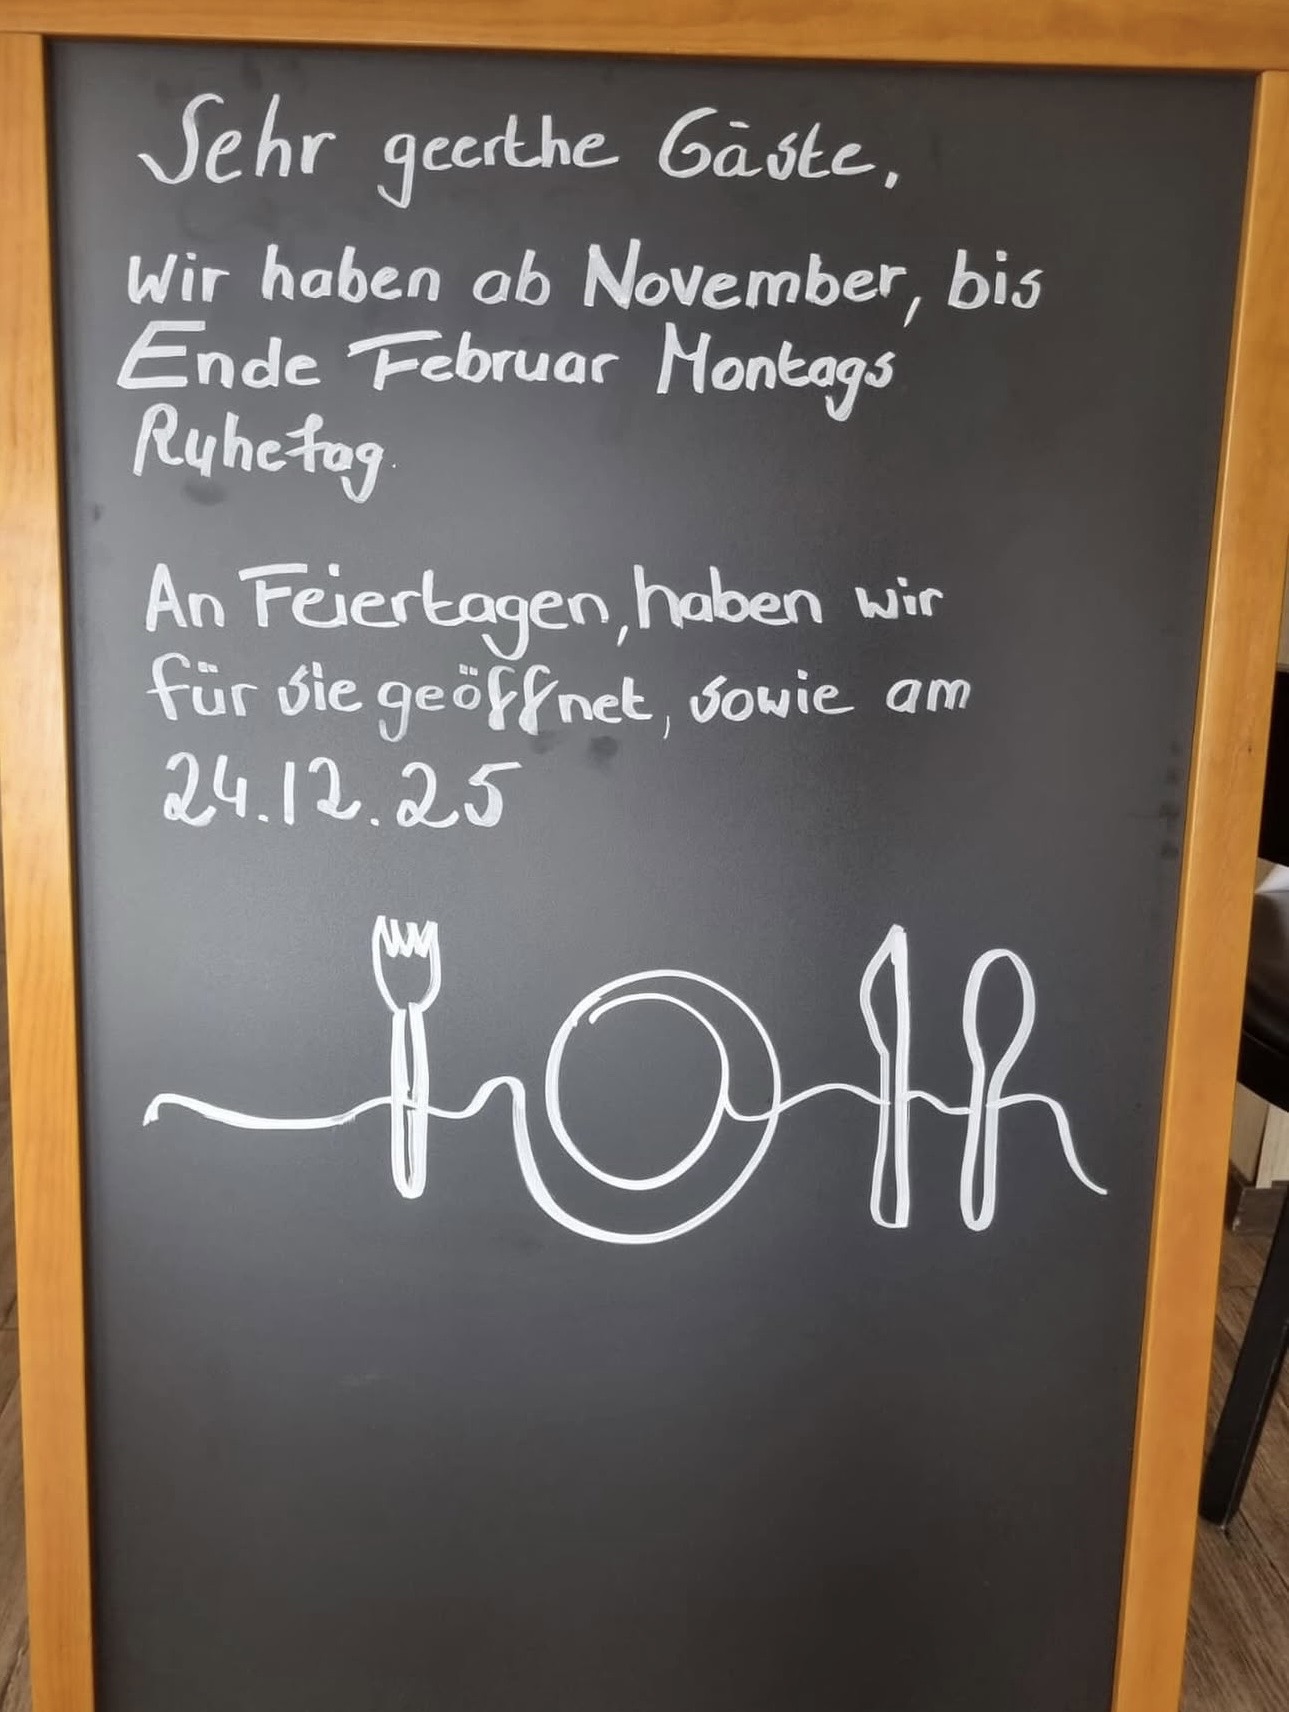 Sehr geerthe Gäste,
Wir haben ab November, bis
Ende Februar Montags
Ruhetag.
An Feiertagen, haben wir
für sie geöffnet, sowie am
24.12.25